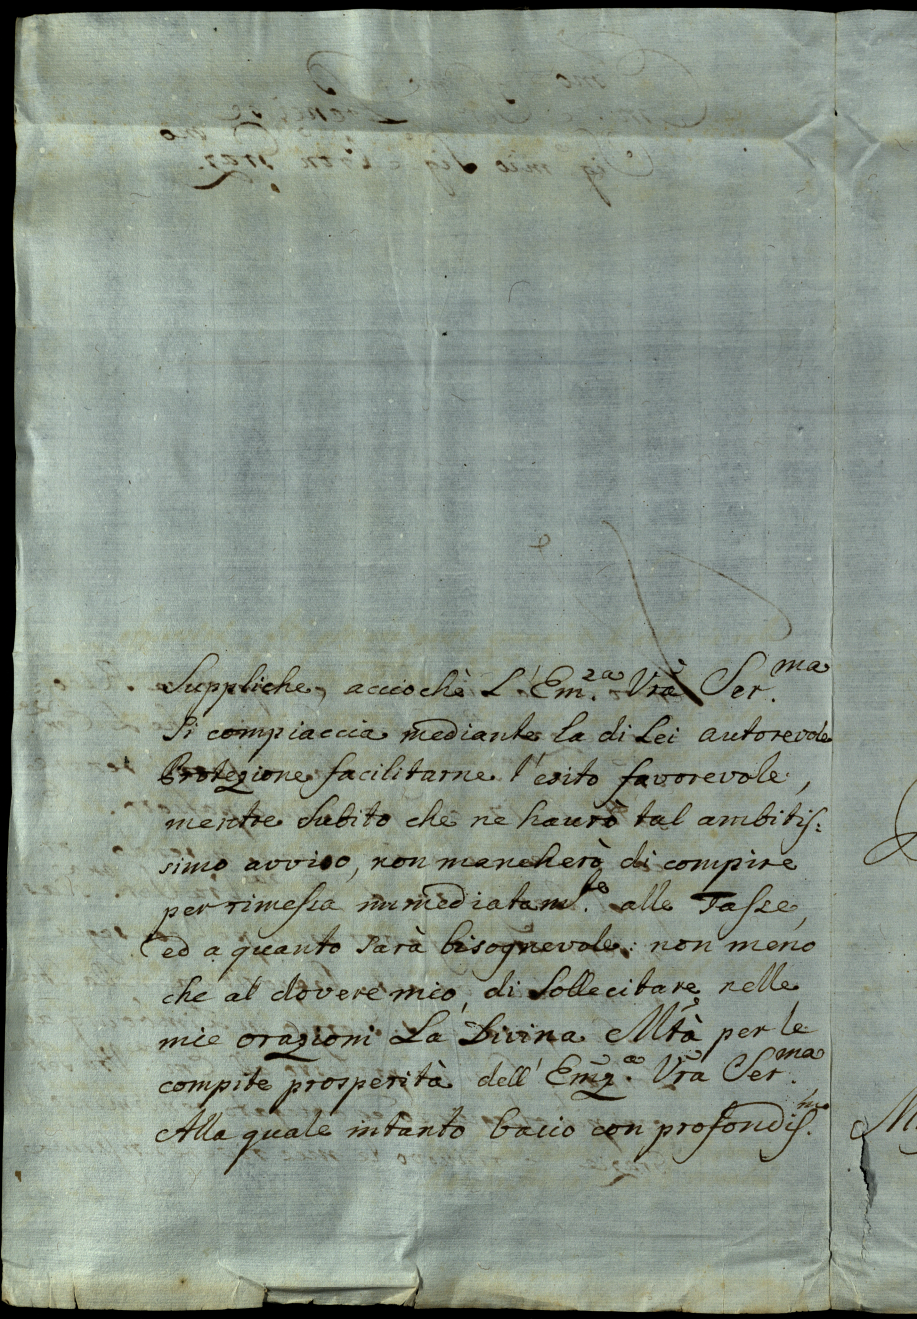 Suppliche, acciochè L'Em.za Vra Ser.ma
Si compiaccia mediante la di Lei autorevole
Protezione facilitarne l'esito favorevole,
mentre subito che ne haurò tal ambitis:
simo avviso, non mancherò di compire
per rimessa immediatam.te alle Tasse,
ed a quanto sarà bisognevole: non meno
che al dovere mio, di Sollecitare nelle
mie orazioni La Divina Mtà per le
compite prosperità dell'Emza. Vra Ser.ma
Alla quale intanto bacio con profondis.mo